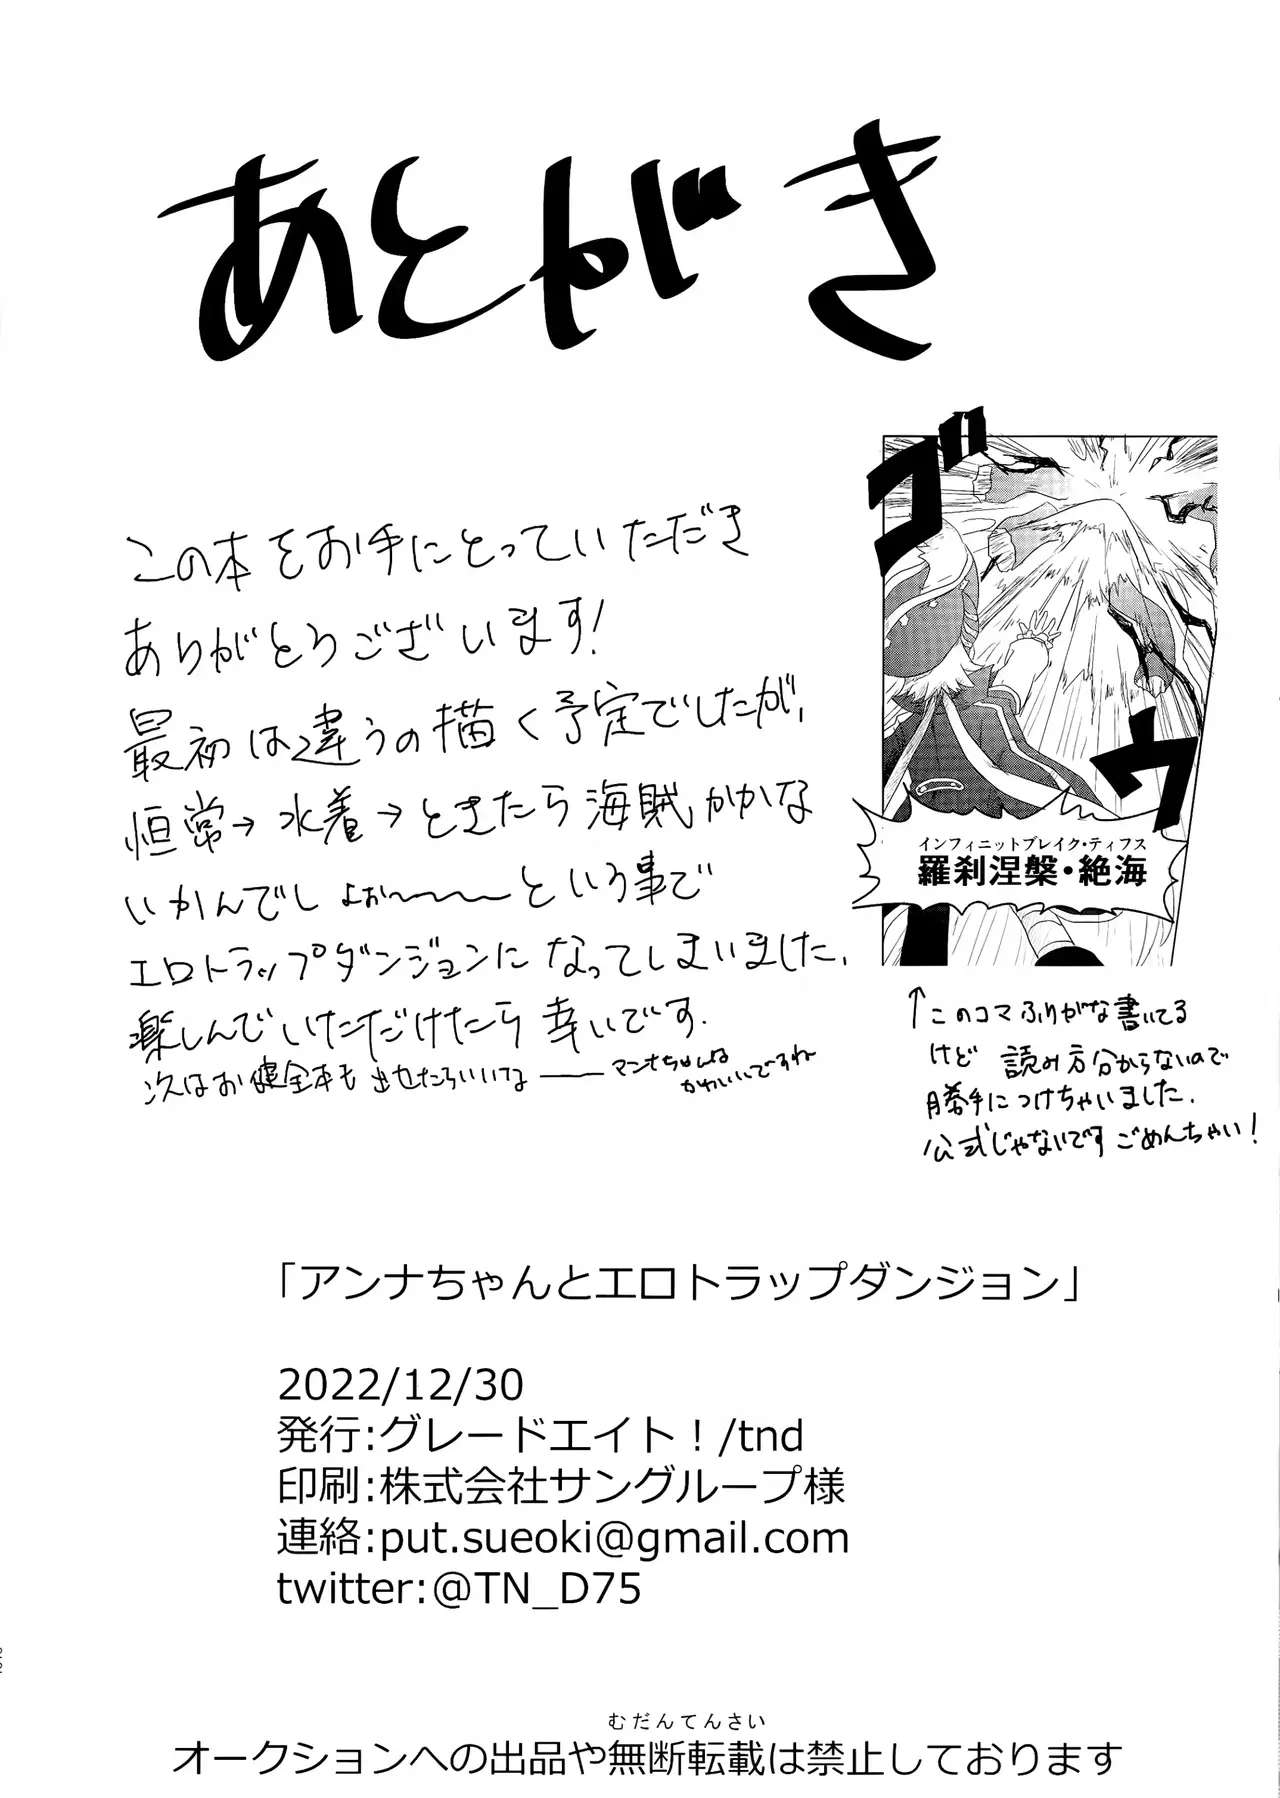 あとがき
この本をお手にとっていただき
ありがとうございます!
最初は違うの描く予定でしたが、
恒常→水着→ときたら海賊かかな
いかんでしょぉ〜〜〜という事で
エロトラップダンジョンになってしまいました、
楽しんでいただけたら幸いです.
次はお健全本も出せたらいいな――マンナちゃんは
かわいいですね
ゴ
ウ
インフィニットブレイク・ティフス
羅刹涅槃・絶海
↑このコマふりがな書いてる
けど 読み方分からないので
勝手につけちゃいました.
公式じゃないです ごめんちゃい!
「アンナちゃんとエロトラップダンジョン」
2022/12/30
発行:グレードエイト！/tnd
印刷:株式会社サングループ様
連絡:put.sueoki@gmail.com
twitter:@TN_D75
むだんてんさい
オークションへの出品や無断転載は禁止しております
22